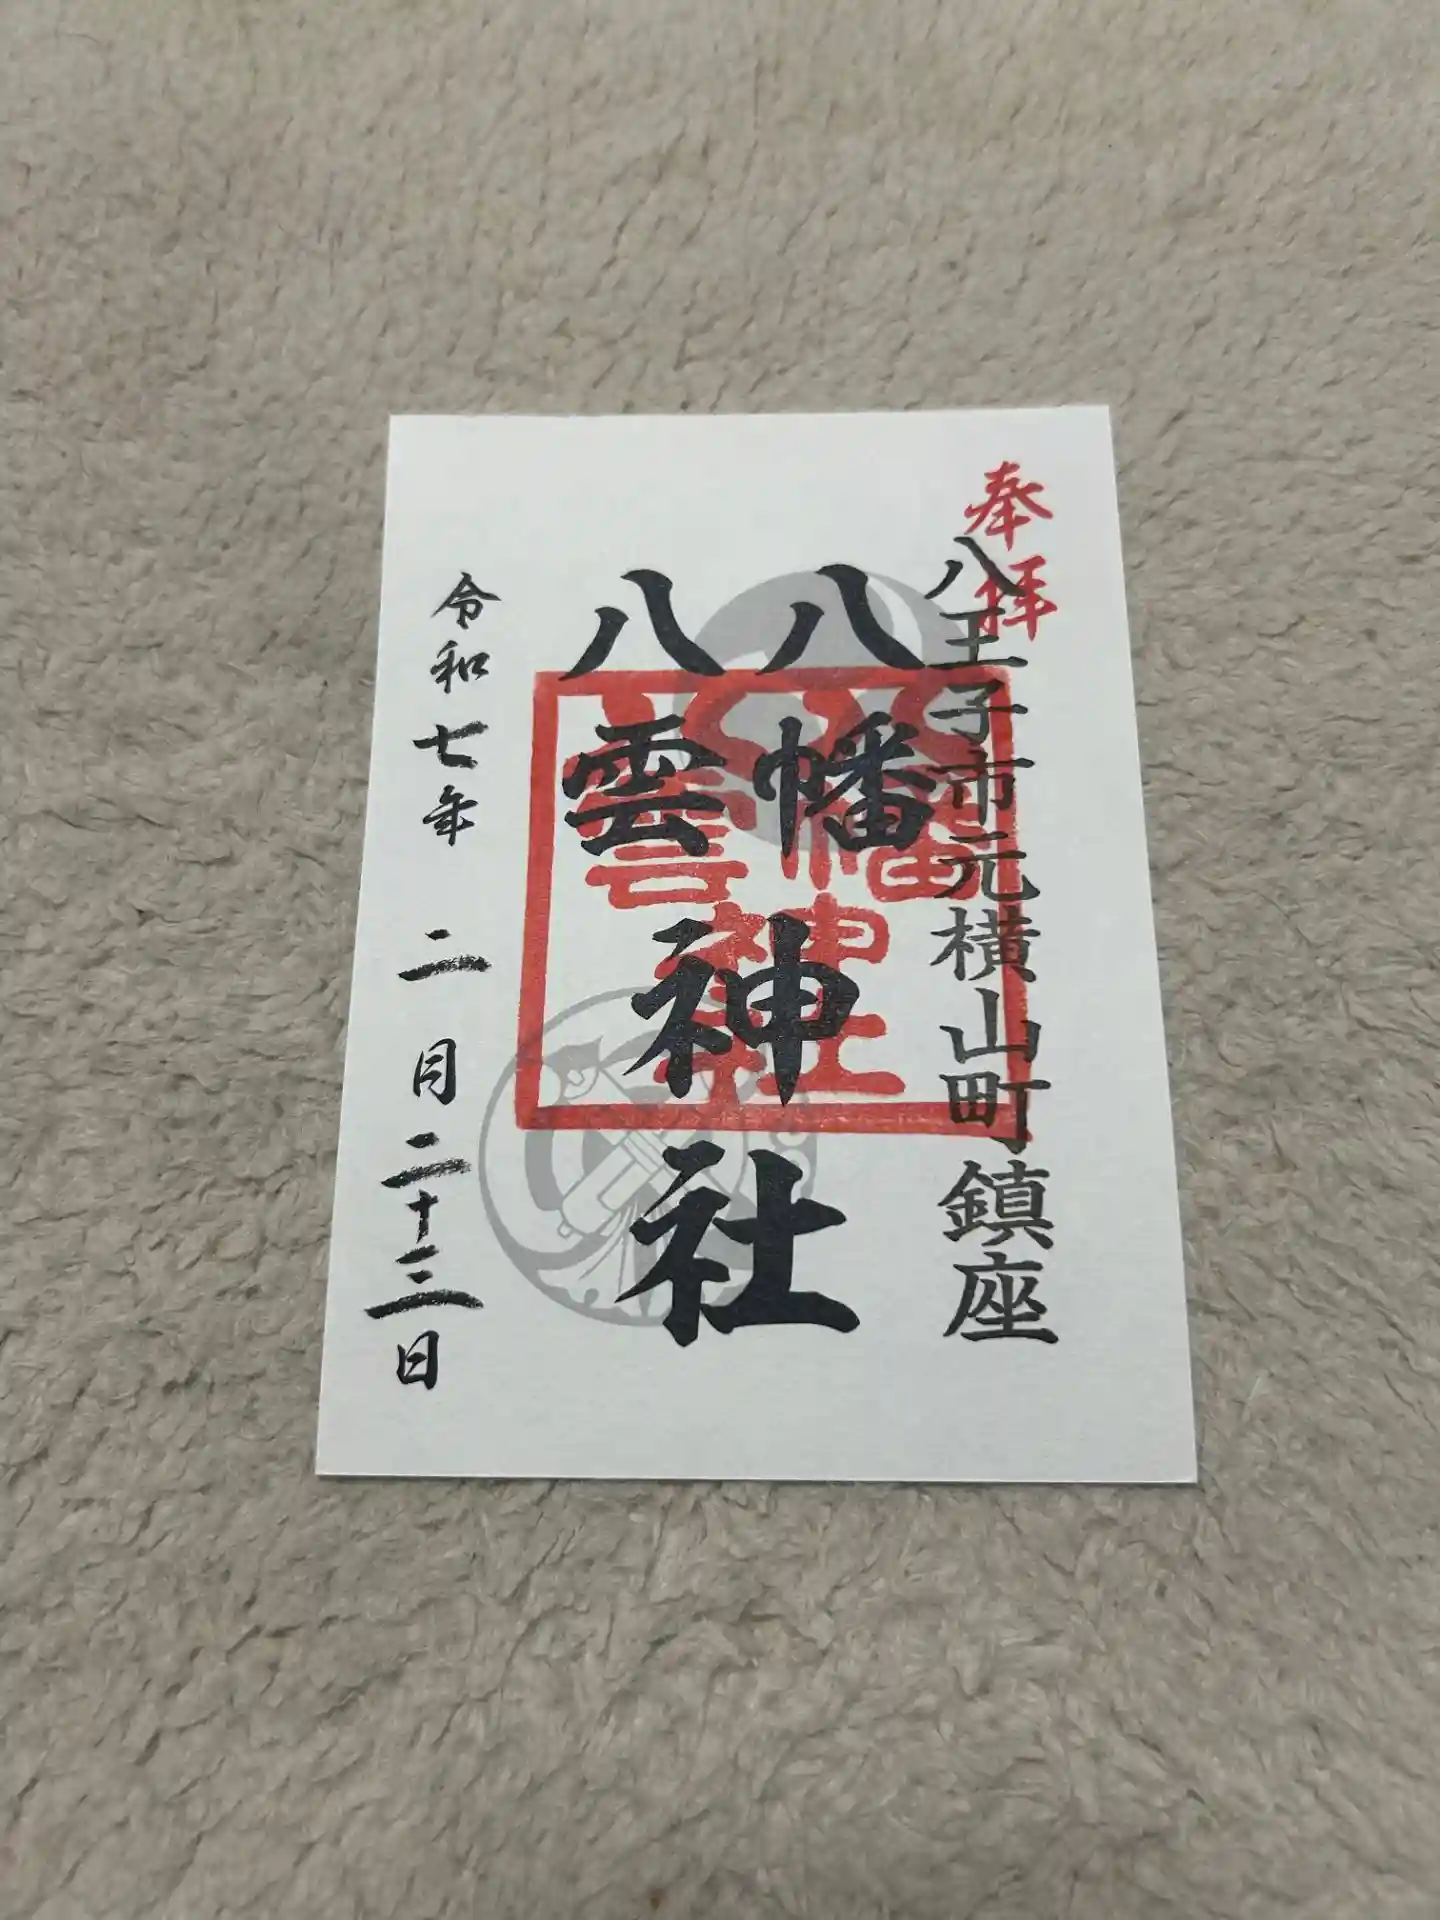 奉拝
八王子市元横山町鎮座
八幡
八雲
神社
八幡
八雲
神社
令和七年 二月二十三日